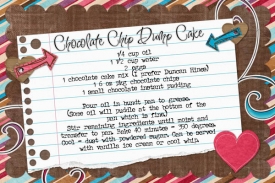 Chocolate Chip Dump Cake
1/4 cup oil
1 1/2 cup water
2 eggs
1 chocolate cake mix (I prefer Duncan Hines)
1 6 oz pkg chocolate chips
1 small chocolate instant pudding
Pour oil in bundt pan to grease.
(Some oil will puddle at the bottom of the
pan which is fine.)
Stir remaining ingredients until moist and
transfer to pan. Bake 40 minutes - 350 degrees.
Cool - dust with powdered sugar. Can be served
with vanilla ice cream or cool whip.